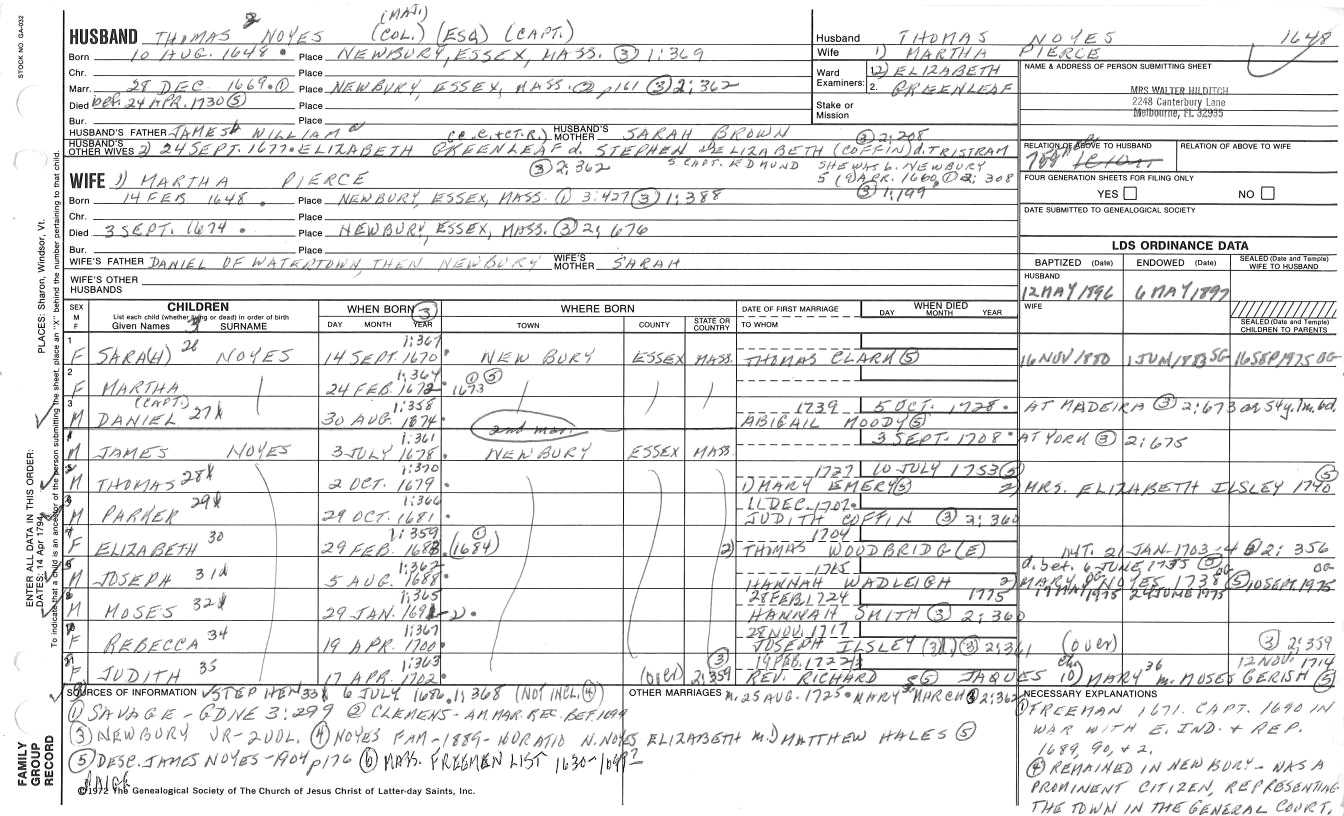 STOCK NO. GA-032
(MAJ.)
HUSBAND THOMAS 2 NOYES (COL.) (ESQ) (CAPT.)
Born 10 AUG. 1648 Place NEWBURY, ESSEX, MASS. (3) 1:369
Chr. Place
Marr. 28 DEC 1669 (1) Place NEWBURY, ESSEX, MASS. (2) p161 (3) 2:362
Died bef. 24 APR. 1730 (5) Place
Bur. Place
HUSBAND'S FATHER JAMES WILLIAM HUSBAND'S MOTHER SARAH BROWN (3) 2:208
HUSBAND'S OTHER WIVES 2) 24 SEPT. 1677 ELIZABETH GREENLEAF d. STEPHEN & ELIZABETH (COFFIN) d. TRISTRAM
(3) 2:362 S CAPT. EDMUND SHE WAS b. NEWBURY
5 APR. 1660, 2:308
(3) 1:199
Husband THOMAS NOYES 1648
Wife 1) MARTHA PIERCE
Ward Examiners: 1. 2) ELIZABETH
2. GREENLEAF
Stake or Mission
NAME & ADDRESS OF PERSON SUBMITTING SHEET
MRS WALTER HILDITCH
2248 Canterbury Lane
Melbourne, FL 32935
RELATION OF ABOVE TO HUSBAND
RELATION OF ABOVE TO WIFE
FOUR GENERATION SHEETS FOR FILING ONLY
YES NO
DATE SUBMITTED TO GENEALOGICAL SOCIETY
WIFE 1) MARTHA PIERCE
Born 14 FEB 1648 Place NEWBURY, ESSEX, MASS. (1) 3:427 (3) 1:388
Chr. Place
Died 3 SEPT. 1674 Place NEWBURY, ESSEX, MASS. (3) 2:676
Bur. Place
WIFE'S FATHER DANIEL OF WATERTOWN, THEN NEWBURY WIFE'S MOTHER SARAH
WIFE'S OTHER HUSBANDS
LDS ORDINANCE DATA
BAPTIZED (Date) ENDOWED (Date) SEALED (Date and Temple) WIFE TO HUSBAND
HUSBAND
12 MAY 1896 6 MAY 1897
WIFE
SEALED (Date and Temple) CHILDREN TO PARENTS
SEX M F CHILDREN List each child (whether living or dead) in order of birth Given Names SURNAME
WHEN BORN (3) DAY MONTH YEAR
WHERE BORN TOWN COUNTY STATE OR COUNTRY
DATE OF FIRST MARRIAGE TO WHOM
WHEN DIED DAY MONTH YEAR
1 F SARA(H) 26 NOYES 1:367 14 SEPT. 1670 NEWBURY ESSEX MASS. THOMAS CLARK (5) 16 NOV 1880 1 JUN 1883 SG 16 SEP 1975 OG
2 F MARTHA 1:364 24 FEB. 1672 1673 (1) (5)
3 M (CAPT) DANIEL 27 1:358 30 AUG. 1674 1739 5 OCT. 1728 AT MADEIRA (3) 2:673
ABIGAIL MOODY (5)
2nd mar.
1 M JAMES NOYES 1:361 3 JULY 1678 NEWBURY ESSEX MASS 3 SEPT. 1708 AT YORK (3) 2:675
2 M THOMAS 28 1:370 2 OCT. 1679 1727 10 JULY 1753 (5)
1) MARY EMERY (5) 2) MRS. ELIZABETH ILSLEY 1740 (5)
3 M PARKER 29 1:366 29 OCT. 1681 11 DEC. 1702
JUDITH COFFIN (3) 2:360
4 F ELIZABETH 30 1:359 29 FEB. 1683 (1684) (1) 1704
2) THOMAS WOODBRIDG(E) INT. 21 JAN-1703-4 2:356
5 M JOSEPH 31 1:362 5 AUG. 1688 1715 d. bet. 6 JUNE 1755 (5) OG
HANNAH WADLEIGH 2) MARY NOYES 1738 (5) 10 SEPT. 1975
6 M MOSES 32 1:365 29 JAN. 1691-2 28 FEB. 1724 1775 17 MAY 1975 24 JUNE 1975
HANNAH SMITH (3) 2:360
7 F REBECCA 34 1:367 19 APR. 1700 28 NOV. 1717
JOSEPH ILSLEY (3) 2:361 (over) (3) 2:359
8 F JUDITH 35 1:363 17 APR. 1702 (over) (3) 2:359 19 FEB. 1722
REV. RICHARD (5) JAQUES 10) MARY 36 m. MOSES GERISH (5) 12 NOV. 1714
SOURCES OF INFORMATION STEPHEN 33 6 JULY 1686 1:368 (NOT INCL. (4))
(1) SAVAGE-GDNE 3:299 (2) CLEMENS-AM. MAR. REC. BEF 1699
(3) NEWBURY VR-2 VOL. (4) NOYES FAM-1889-HORATIO N. NOYES
(5) DESC. JAMES NOYES-1904 p176 (6) MASS. FREEMEN LIST 1630-
OTHER MARRIAGES m. 25 AUG. 1725 MARY MARCH 2:362
ELIZABETH m. 1) MATTHEW HALES (5)
NECESSARY EXPLANATIONS
(1) FREEMAN 1671. CAPT. 1690 IN
WAR WITH E. IND. + REP.
1689, 90, + 2.
(4) REMAINED IN NEWBURY-WAS A
PROMINENT CITIZEN, REPRESENTING
THE TOWN IN THE GENERAL COURT.
©1972 The Genealogical Society of The Church of Jesus Christ of Latter-day Saints, Inc.
FAMILY GROUP RECORD
ENTER ALL DATA IN THIS ORDER:
DATES: 14 Apr 1794
PLACES: Sharon, Windsor, Vt.
To indicate that a child is an ancestor of the person submitting the sheet, place an "X" behind the number pertaining to that child.